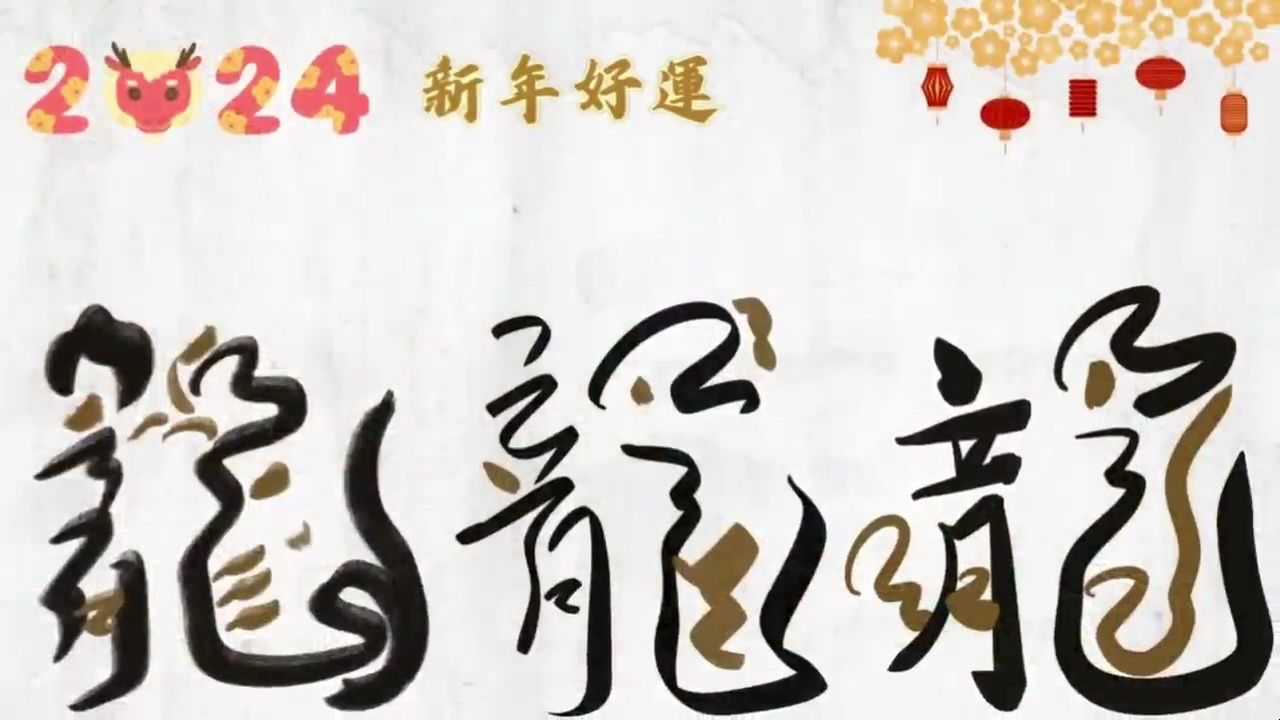 2024 新年好運
龍 龍 龍